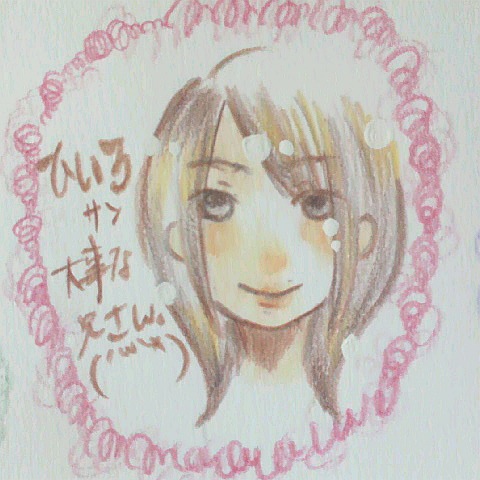 ひいろ
サン
大事な
父さん。
(´ω`*)